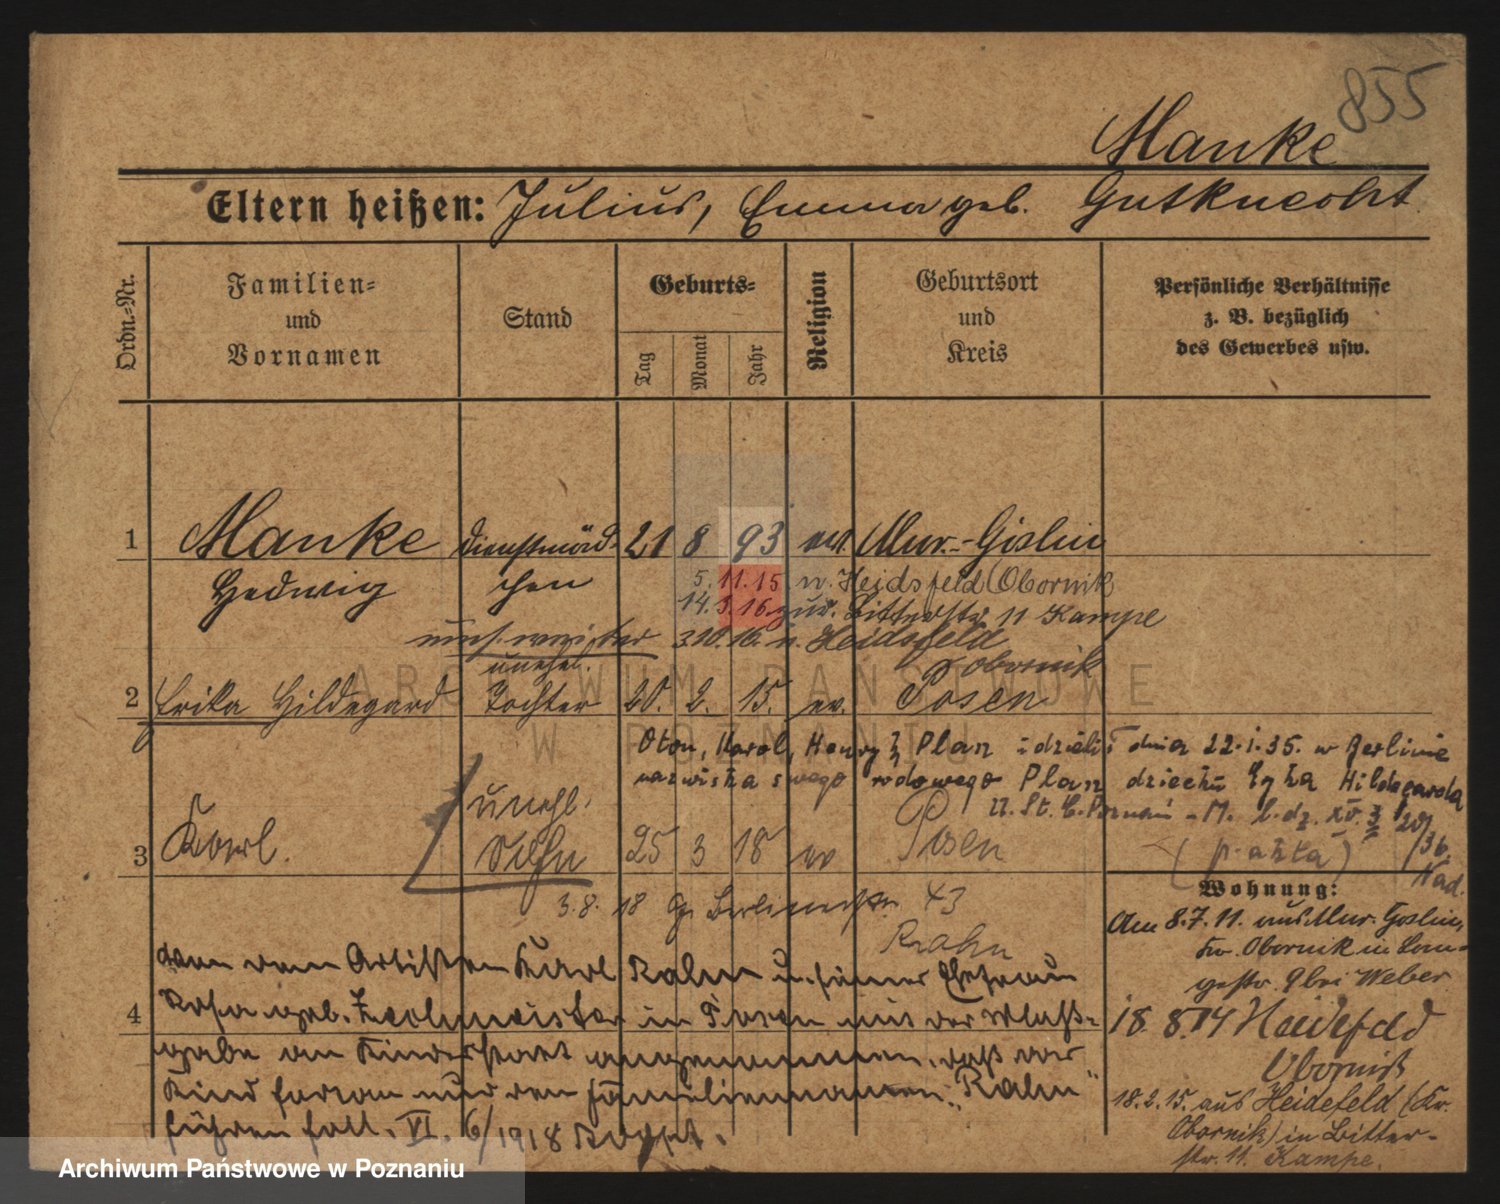 855
Manke
Eltern heißen: Julius, Emma geb. Gutknecht.
Ordn.-Nr.
Familien-
und
Vornamen
Stand
Geburts-
Tag
Monat
Jahr
Religion
Geburtsort
und
Kreis
Persönliche Verhältnisse
z. B. bezüglich
des Gewerbes usw.
1 Manke Dienstmäd- 21 8 93 Mur.-Goslin
Hedwig chen 5.11.15 n. Heidsfeld (Obornik
14.3.16 zur. Bitterstr 11 Kampe
3.10.16. n. Heidsfeld
unehel. Obornik
2 Erika Hildegard Tochter 20. 2. 15. ev. Posen
Oton, Karol, Henryk Plan dnia 22.1.35. w Berlinie
nazwiska swego rodowego Plan dziecku Hildegarda
U. St. C. Poznań - M. l. dz. XV.
unehl.
3 Karl. Sohn 25 3 18 ev Posen
3.8. 18 Gr Berlinerstr 43
Rahn
Wohnung:
Am 8.7.11. aus Mur. Goslin,
Kr. Obornik in Lan-
gestr. 9 bei Weber
18. 8. 14 Heidefeld
Obornik
18.2.15. aus Heidefeld (Kr.
Obornik) in Bitter-
str. 11. Kampe.
4
von dem Artisten Karl Rahn u. seiner Ehefrau
Rosa geb. Zechmeister in Posen mit der Maß-
gabe an Kindesstatt angenommen, daß das
Kind fortan nur den Familiennamen „Rahn"
führen soll. VI. 6/1918
ARCHIWUM PAŃSTWOWE
W POZNANIU
Archiwum Państwowe w Poznaniu